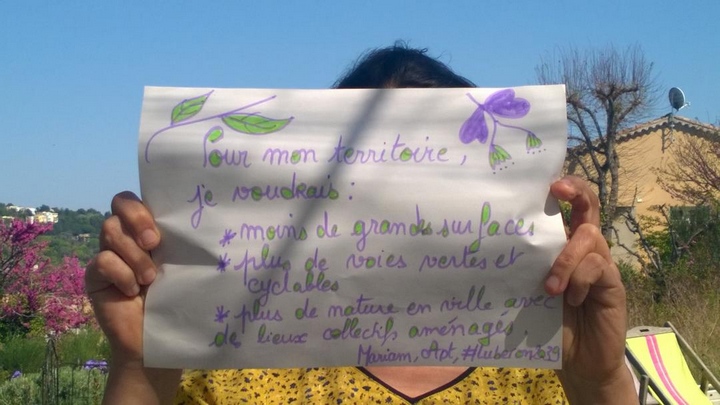 Pour mon territoire,
je voudrais :
* moins de grandes surfaces
* plus de voies vertes et
cyclables
* plus de nature en ville avec
de lieux collectifs aménagés.
Mariam, Apt, #luberon2039